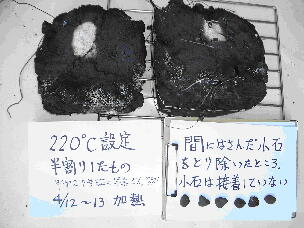 220℃設定
半割りしたもの
4/12～13 加熱
間にはさんだ小石
をとり除いたところ、
小石は接着していない